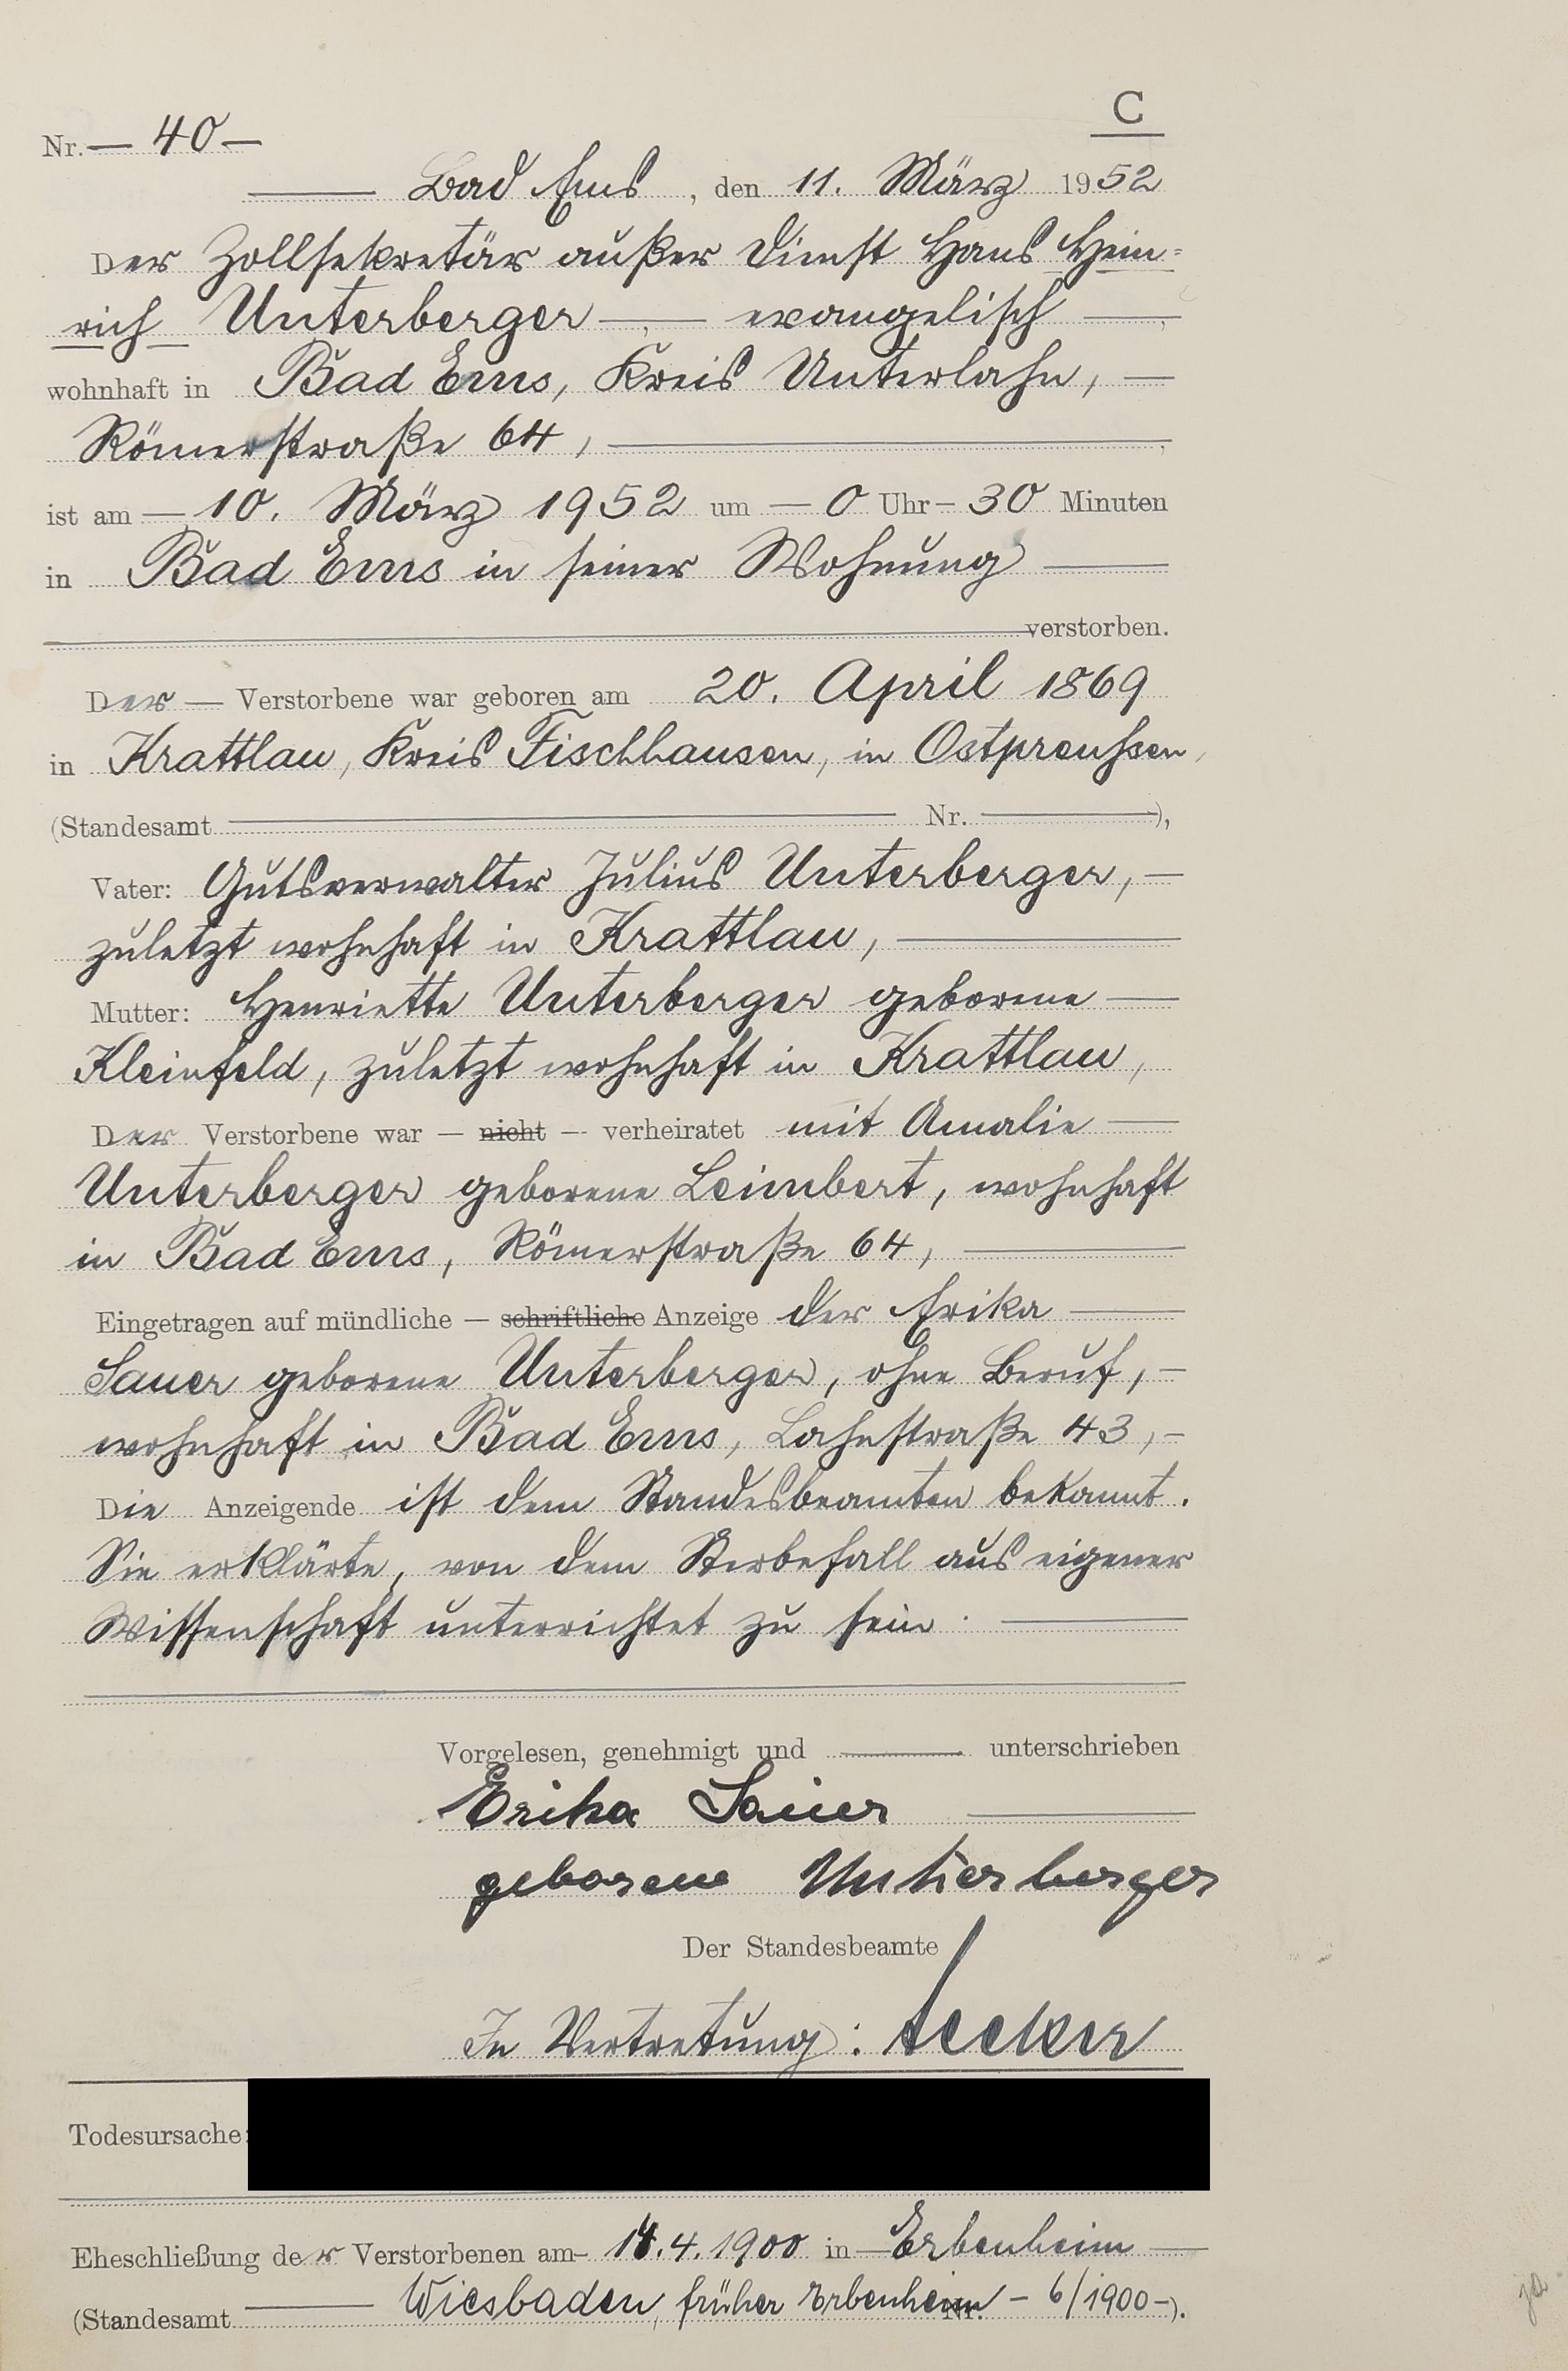 C
Nr. — 40 —
Bad Ems, den 11. März 1952
Der Zollsekretär außer Dienst Hans Hein=
rich Unterberger —, — evangelisch —,
wohnhaft in Bad Ems, Kreis Unterlahn, —
Römerstraße 64, —,
ist am — 10. März 1952 um — 0 Uhr — 30 Minuten
in Bad Ems in seiner Wohnung —
verstorben.
Der — Verstorbene war geboren am 20. April 1869
in Krattlau, Kreis Fischhausen, in Ostpreußen,
(Standesamt — Nr. —),
Vater: Gutsverwalter Julius Unterberger, —
zuletzt wohnhaft in Krattlau, —
Mutter: Henriette Unterberger geborene —
Kleinfeld, zuletzt wohnhaft in Krattlau,
Der Verstorbene war — nicht — verheiratet mit Amalie —
Unterberger geborene Leimbert, wohnhaft
in Bad Ems, Römerstraße 64, —
Eingetragen auf mündliche — schriftliche Anzeige der Erika —
Sauer geborene Unterberger, ohne Beruf, —
wohnhaft in Bad Ems, Lahnstraße 43, —
Die Anzeigende ist dem Standesbeamten bekannt.
Sie erklärte, von dem Sterbefall aus eigener
Wissenschaft unterrichtet zu sein. —
Vorgelesen, genehmigt und — unterschrieben
Erika Sauer —
geborene Unterberger
Der Standesbeamte
In Vertretung:
Todesursache:
Eheschließung der Verstorbenen am — .4.1900 in — Erbenheim —
(Standesamt — Wiesbaden, früher Erbenheim Nr. — 6/1900 —).